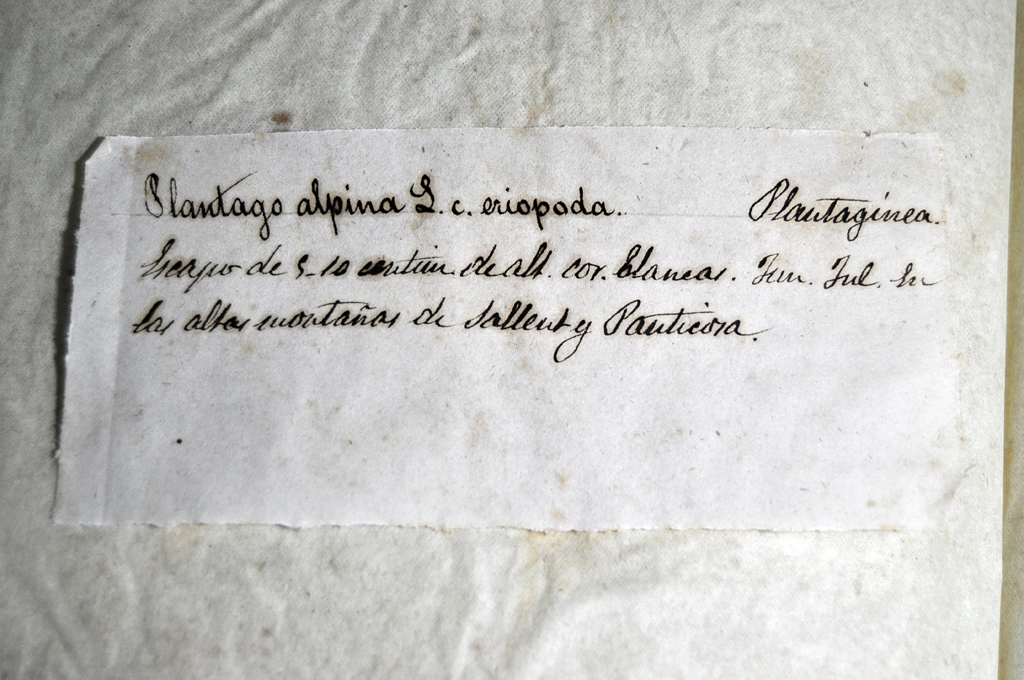 Plantago alpina L. c. eriopoda. Plantaginea.
Escapo de 5-10 centim. de alt. cor. blancas. Jun. Jul. En
las altas montañas de Sallent y Panticosa.